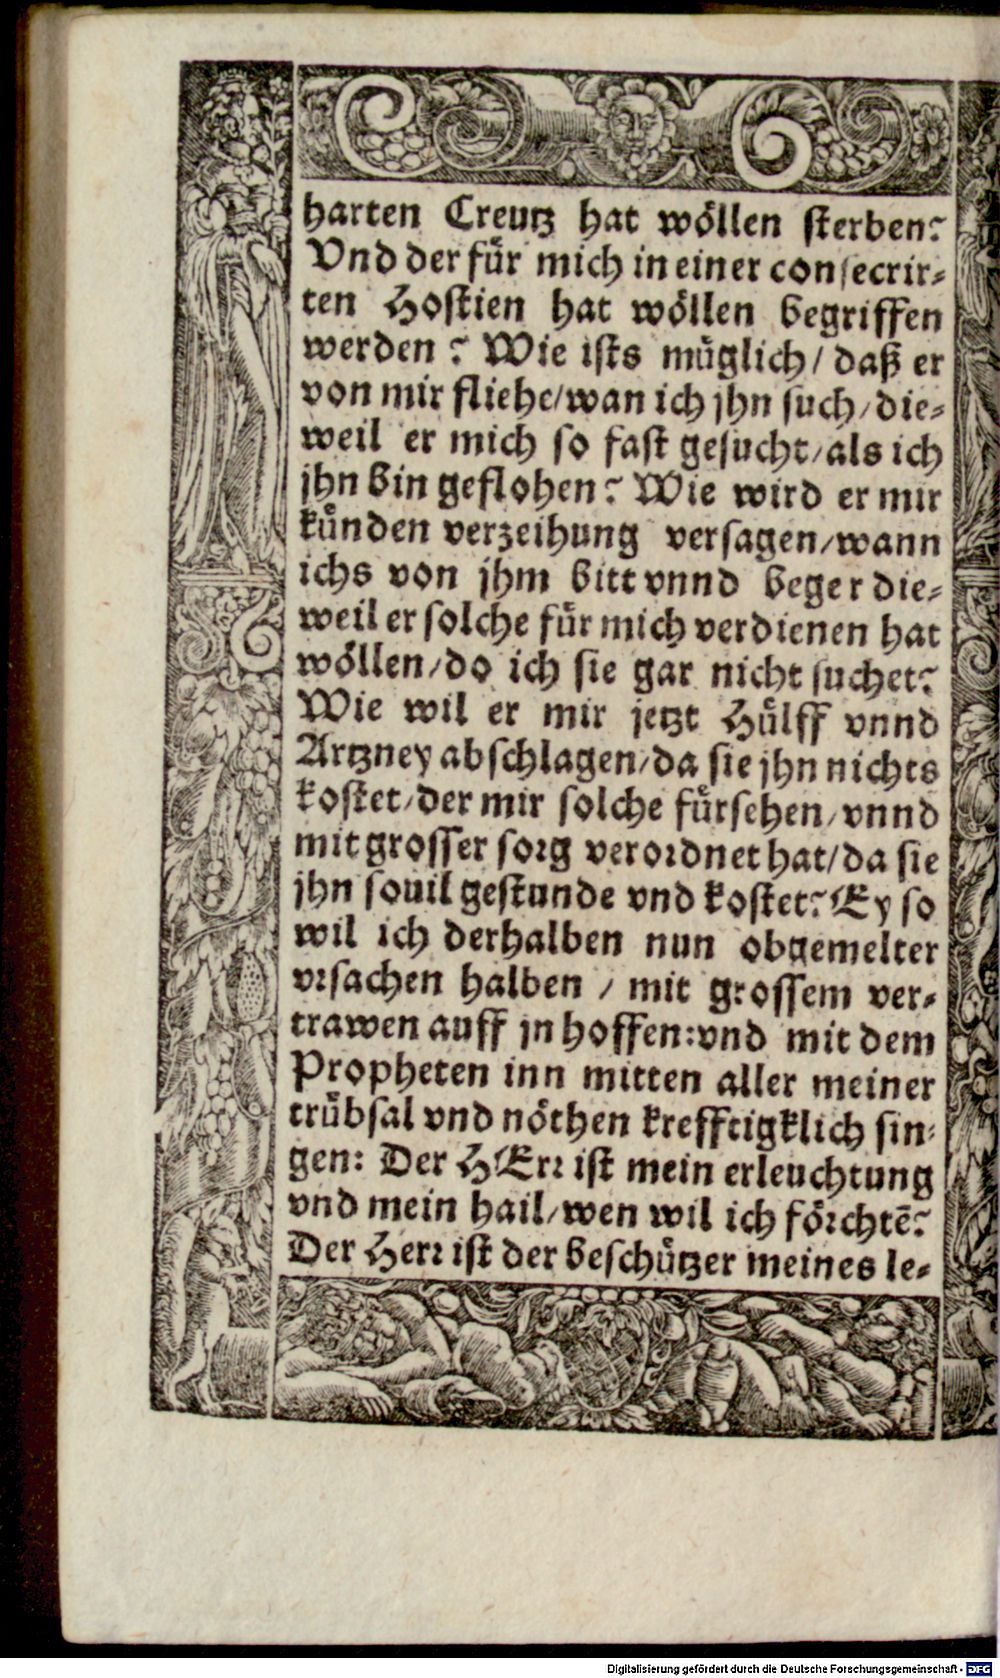 harten Creutz hat wöllen sterben?
Vnd der für mich in einer consecrir-
ten Hostien hat wöllen begriffen
werden? Wie ists müglich/ daß er
von mir fliehe/wan ich jhn such/die-
weil er mich so fast gesucht/als ich
jhn bin geflohen? Wie wird er mir
künden verzeihung versagen/wann
ichs von jhm bitt vnnd beger die-
weil er solche für mich verdienen hat
wöllen/do ich sie gar nicht suchet?
Wie wil er mir jetzt Hülff vnnd
Artzney abschlagen/da sie jhn nichts
kostet/der mir solche fürsehen/vnnd
mit grosser sorg verordnet hat/da sie
jhn souil gestunde vnd kostet? Ey so
wil ich derhalben nun obgemelter
vrsachen halben / mit grossem ver-
trawen auff jn hoffen:vnd mit dem
Propheten inn mitten aller meiner
trübsal vnd nöthen krefftigklich sin-
gen: Der HErr ist mein erleuchtung
vnd mein hail/wen wil ich förchtē?
Der Herr ist der beschützer meines le-
Digitalisierung gefördert durch die Deutsche Forschungsgemeinschaft - DFG